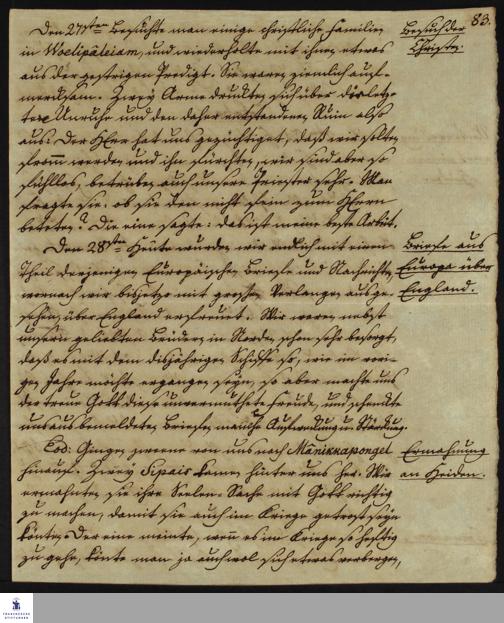 83.
Den 27sten Besuchte man einige christliche Familien
Besuch der
Christen.
in Woelipâleiam, und wiederholte mit ihnen etwas
aus der gestrigen Predigt. Sie waren ziemlich auf-
mercksam. Zwey Arme druckten sich über die letz-
tere Unruhe und den daher entstandenen Ruin also
aus: Der HErr hat uns gezüchtiget, daß wir solten
fromm werden und ihn fürchten, wir sind aber so
fühllos, betrüben auch unsere Priester sehr. Man
fragte sie: ob sie den nicht fein zum HErrn
beteten? Die eine sagte: das ist meine beste Arbeit.
Den 28sten Heute wurden wir endlich mit einem
Briefe aus
Europa über
England.
Theil derjenigen Europäischen Briefe und Nachrichten,
wornach wir bisjetzo mit grossem Verlangen ausge-
sehen, über England erfreuet. Wir waren nebst
unsern geliebten Brüdern in Norden schon sehr besorgt,
daß es mit dem disjährigen Schiffe so, wie im vori-
gen Jahre möchte ergangen seyn, so aber machte uns
der treue Gott diese unvermuthete Freude, und schenckte
uns aus bemeldeten Briefen manche Aufmunterung u. Stärckung.
Eod: Gingen zweene von uns nach Mânikkapongel
Ermahnung
an Heiden.
hinaus. Zwey Sipair kamen hinter uns her. Wir
ermahnten sie ihre Seelen-Sache mit Gott richtig
zu machen, damit sie auch im Kriege getrost seyn
könten. Der eine meinte, wenn es im Kriege so heftig
zu gehe, könte man ja auch wol sich etwas verbergen,
FRANCKESCHE
STIFTUNGEN